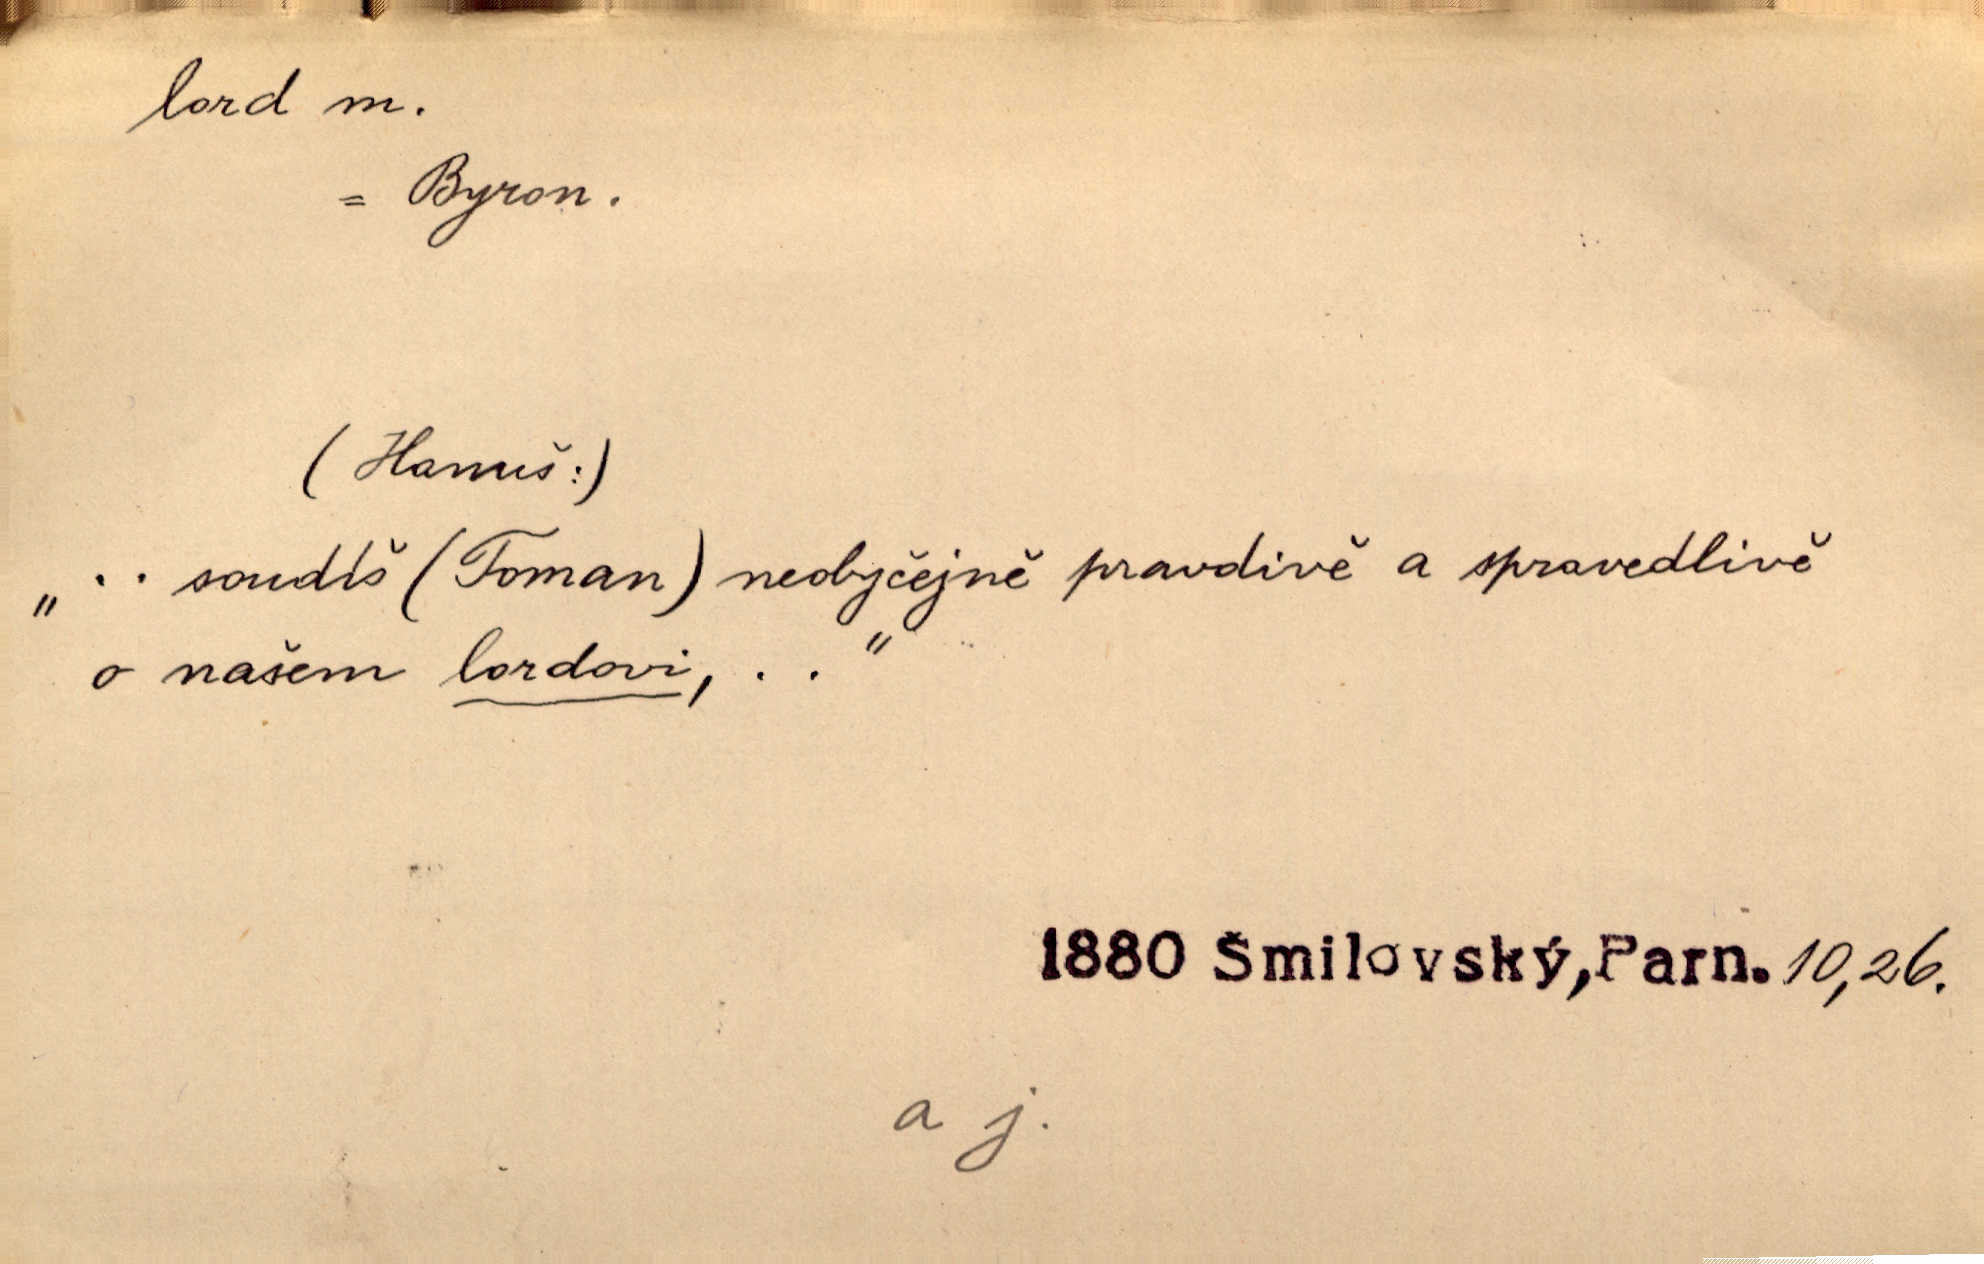 lord m.
= Byron.
(Hanuš:)
„ . . soudíš (Toman) neobyčejně pravdivě a spravedlivě
o našem lordovi, . . "
1880 Šmilovský, Parn. 10, 26.
a j.